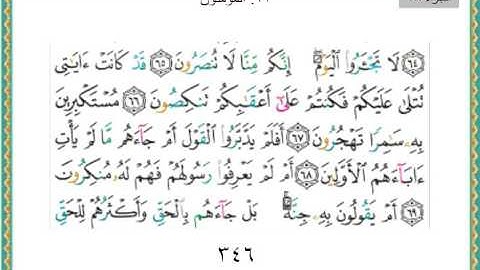 ﴿٦٤﴾ لَا تَجْـَٔرُوا۟ ٱلْيَوْمَ ۖ إِنَّكُم مِّنَّا لَا تُنصَرُونَ ﴿٦٥﴾ قَدْ كَانَتْ ءَايَـٰتِى
تُتْلَىٰ عَلَيْكُمْ فَكُنتُمْ عَلَىٰٓ أَعْقَـٰبِكُمْ تَنكِصُونَ ﴿٦٦﴾ مُسْتَكْبِرِينَ
بِهِۦ سَـٰمِرًا تَهْجُرُونَ ﴿٦٧﴾ أَفَلَمْ يَدَّبَّرُوا۟ ٱلْقَوْلَ أَمْ جَآءَهُم مَّا لَمْ يَأْتِ
ءَابَآءَهُمُ ٱلْأَوَّلِينَ ﴿٦٨﴾ أَمْ لَمْ يَعْرِفُوا۟ رَسُولَهُمْ فَهُمْ لَهُۥ مُنكِرُونَ
﴿٦٩﴾ أَمْ يَقُولُونَ بِهِۦ جِنَّةٌۢ ۚ بَلْ جَآءَهُم بِٱلْحَقِّ وَأَكْثَرُهُمْ لِلْحَقِّ
٣٤٦